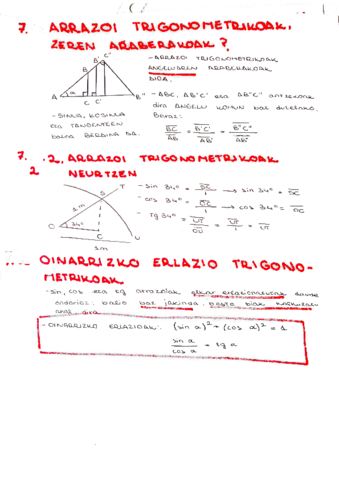 7. ARRAZOI TRIGONOMETRIKOAK,
ZEREN ARABERAKOAK?
- ARRAZOI TRIGONOMETRIKOAK
ANGELUAREN ARABERAKOAK
DIRA.
B B' C'
A α C C B''
- ABC, AB'C' eta AB''C'' antzekoak
dira ANGELU KOMUN bat dutelako.
Beraz:
- SINUA, KOSINUA
eta TANGENTEEN
balioa BERDINA DA.
BC/AB = B'C'/AB' = B''C''/AB''
7.2. ARRAZOI TRIGONOMETRIKOAK
2 NEURTZEN
S T
1m
O 34° C U
1m
- sin 34° = SC/1 → sin 34° = SC
- cos 34° = OC/1 → cos 34° = OC
- Tg 34° = UT/OU = UT/1 = UT
OINARRIZKO ERLAZIO TRIGONO-
METRIKOAK
- sin, cos eta tg arrazoiak elkar erlazionatuak daude
balio bat jakinda, beste biak kalkulatu
ahal dira
- OINARRIZKO ERLAZIOAK: (sin α)² + (cos α)² = 1
sin α / cos α = tg α